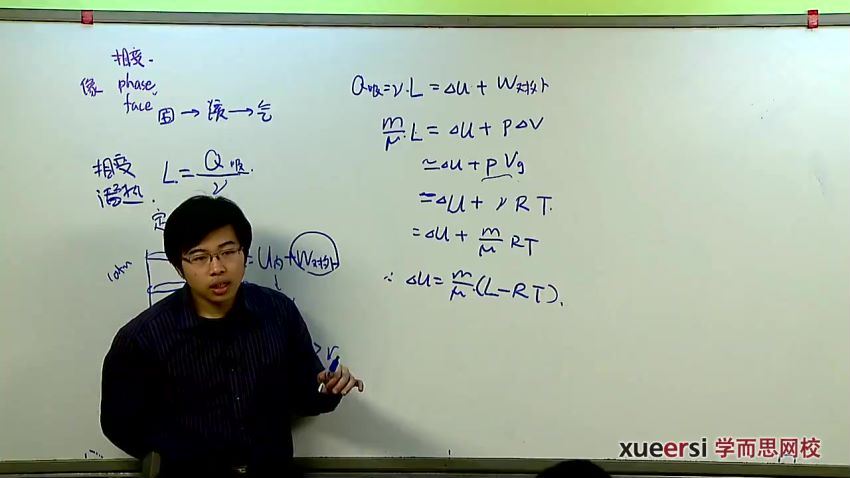 相变.
像 phase,
face
固→液→气
相变
潜热.
L = Q吸 / ν.
定
1atm
= U内 + W对外
> V
Q吸 = ν·L = ΔU + W对外
m/μ·L = ΔU + PΔV
≃ ΔU + P Vg
= ΔU + ν R T.
= ΔU + m/μ RT
∴ ΔU = m/μ·(L − R T).
xueersi 学而思网校